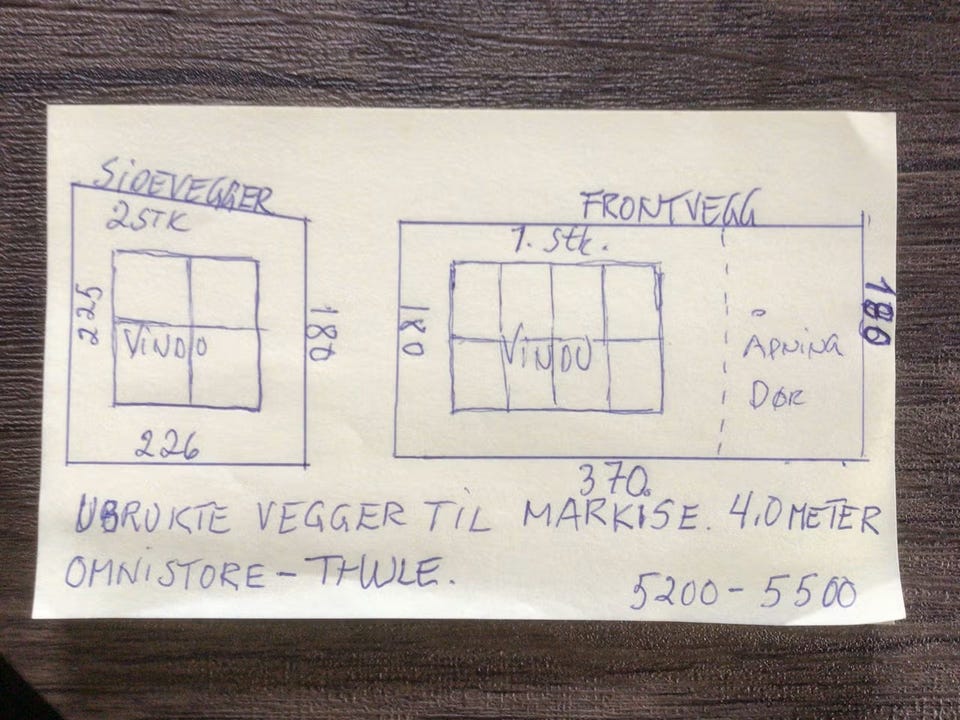 SIDEVEGGER
2 STK
225
VINDO
180
226
FRONTVEGG
1. Stk.
180
VINDU
ÅPNING
DØR
180
370.
UBRUKTE VEGGER TIL MARKISE. 4.0 METER
OMNISTORE - THULE.
5200 - 5500